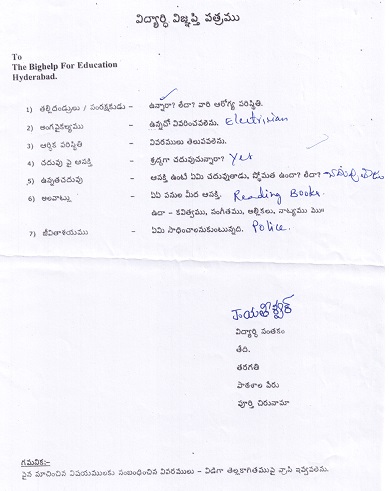 విద్యార్థి విజ్ఞప్తి పత్రము
To
The Bighelp For Education
Hyderabad.
1) తల్లిదండ్రులు / సంరక్షకుడు – ఉన్నారా? లేదా? వారి ఆరోగ్య పరిస్థితి.
2) అంగవైకల్యము – ఉన్నదో వివరించవలెను. Electrician
3) ఆర్థిక పరిస్థితి – వివరములు తెలుపవలెను.
4) చదువు పై ఆసక్తి – శ్రద్ధగా చదువుచున్నారా? Yes
5) ఉన్నతచదువు – ఆసక్తి ఉంటే ఏమి చదువుతాడు, స్తోమత ఉందా? లేదా?
6) అలవాట్లు – ఏఏ పనుల మీద ఆసక్తి. Reading Books.
ఉదా – కవిత్వము, సంగీతము, ఆల్బికలు, నాట్యము మొ॥
7) జీవితాశయము – ఏమి సాధించాలనుకుంటున్నది. Police.
విద్యార్థి సంతకం
తేది.
తరగతి
పాఠశాల పేరు
పూర్తి చిరునామా
గమనిక:–
పైన సూచించిన విషయములకు సంబంధించిన వివరములు – విడిగా తెల్లకాగితముపై వ్రాసి ఇవ్వవలెను.